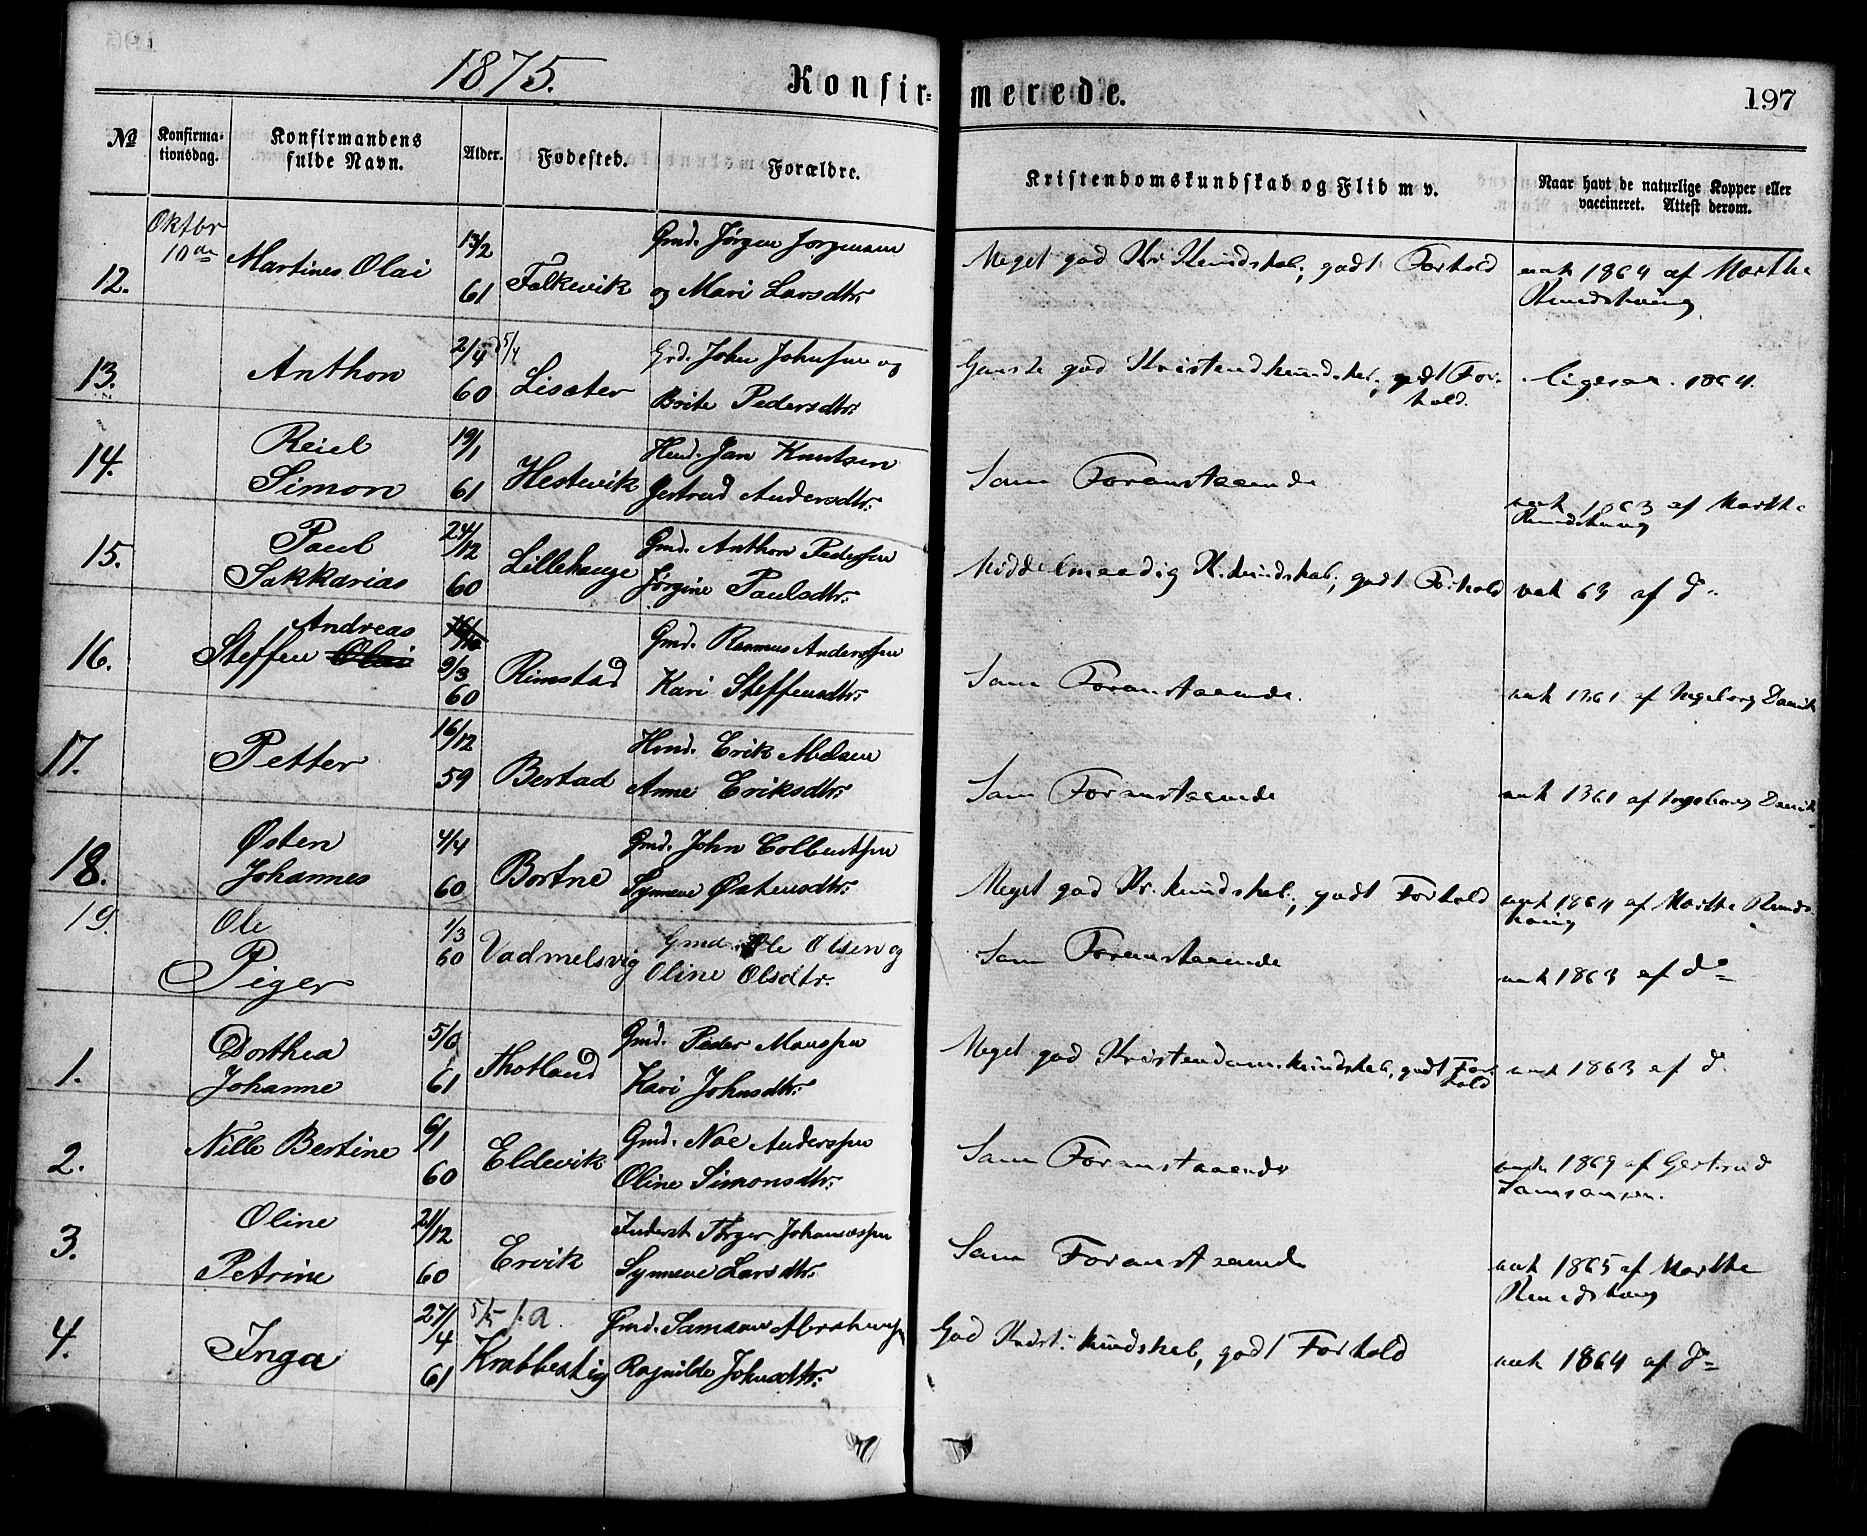 1875.
Konfir- merede.
197
No Konfirma-tionsdag. Konfirmandens fulde Navn. Alder. Fødested. Forældre. Kristendomskundskab og Flid m v. Naar havt de naturlige Kopper eller vaccineret. Attest derom.
Oktbr
12. 10de Martines Olai 13/2 61 Falkevik Gmd. Jørgen Jørgensen og Mari Larsdtr. Meget god Kr. Kundskab, godt Forhold vak 1864 af Marthe
13. Anthon 2/4 5/4 60 Lisæter Grd. John Johnsen og Brite Pedersdtr. Ganske god Kristendkundskab, godt Forhold. ligesaa 1864.
14. Reiel Simon 19/1 61 Hestevik Husd. Jan Knutsen Gertrud Andersdtr. Som Foranstaaende vak 1863 af Marthe
15. Paul Sakkarias 24/12 60 Lillehauge Gmd. Anthon Pedersen Jørgine Paulsdtr. Middelmaadig K. kundskab, godt Forhold vak 63 af do
16. Steffen Andreas Olai 9/3 60 Rimstad Gmd. Rasmus Anderssen Kari Steffensdtr. Som Foranstaaende. vak 1861 af Ingeborg
17. Petter 16/12 59 Berstad Husd. Erik Anne Eriksdtr. Som Foranstaaende vak 1861 af Ingeborg
18. Østen Johannes 4/4 60 Bortne Gmd. John Colbentsen Synneve Østensdtr. Meget god Kr. kundskab, godt Forhold vak 1864 af Marthe
19. Ole 1/3 60 Vadmelsvig Gmd. Ole Olsen og Oline Olsdtr. Som Foranstaaende vak 1863 af do
Piger
1. Dorthea Johanne 5/6 61 Thotland Gmd. Peder Monssen Kari Johnsdtr. Meget god Kristendomskundskab, godt Forhold vak 1863 af do
2. Nille Bertine 6/1 60 Eldevik Gmd. Noe Anderssen Oline Simonsdtr. Som Foranstaaende vak 1869 af Gertrud
3. Oline Petrine 21/12 60 Ervik Inderst Johannessen Synneve Larsdtr. Som Foranstaaende vak 1865 af Marthe
4. Inga 27/4 61 Krabbestig Gmd. Samson Ragnilde Johnsdtr. God Krist. kundskab, godt Forhold vak 1864 af do